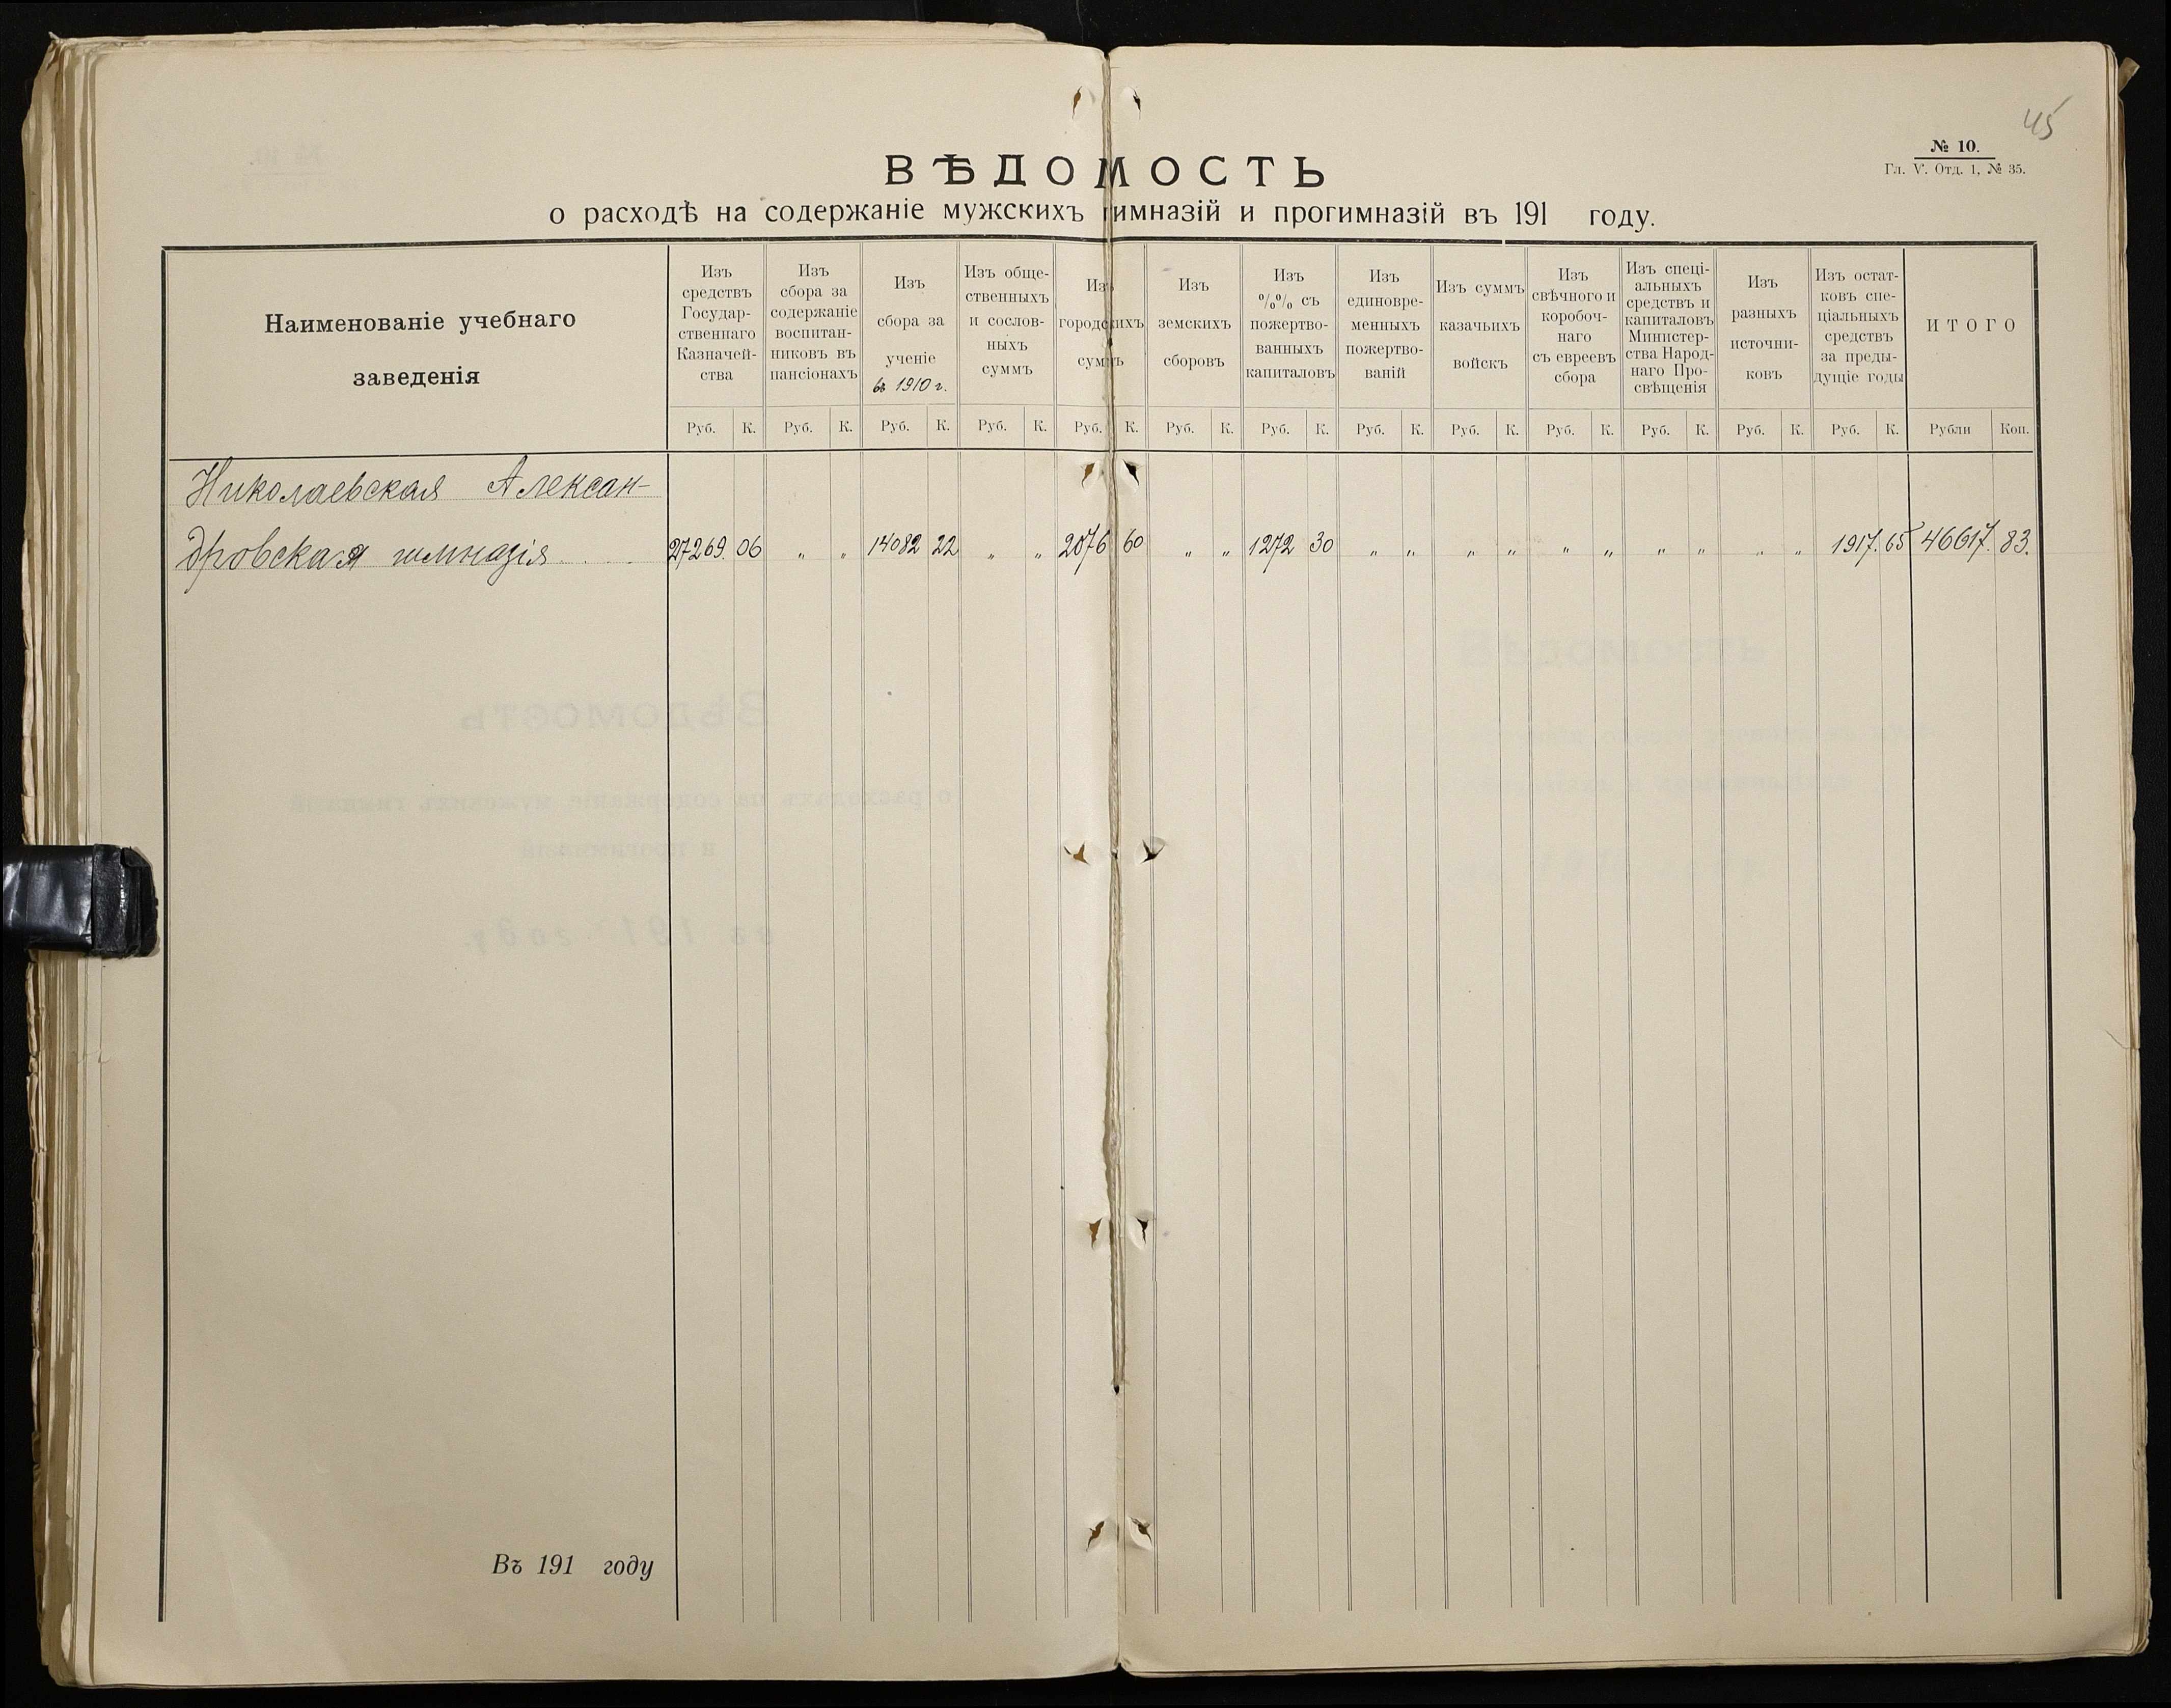 45
№ 10.
Гл. V. Отд. 1, № 35.
ВѢДОМОСТЬ
о расходѣ на содержаніе мужскихъ гимназій и прогимназій въ 191 году.
Наименованіе учебнаго
заведенія
Изъ
средствъ
Государ-
ственнаго
Казначей-
ства
Изъ
сбора за
содержаніе
воспитан-
никовъ въ
пансіонахъ
Изъ
сбора за
ученіе
въ 1910 г.
Изъ обще-
ственныхъ
и сослов-
ныхъ
суммъ
Изъ
городскихъ
суммъ
Изъ
земскихъ
сборовъ
Изъ
%% съ
пожертво-
ванныхъ
капиталовъ
Изъ
единовре-
менныхъ
пожертво-
ваній
Изъ суммъ
казачьихъ
войскъ
Изъ
свѣчного и
коробоч-
наго
съ евреевъ
сбора
Изъ спеці-
альныхъ
средствъ и
капиталовъ
Министер-
ства Народ-
наго Про-
свѣщенія
Изъ
разныхъ
источни-
ковъ
Изъ остат-
ковъ спе-
ціальныхъ
средствъ
за преды-
дущіе годы
ИТОГО
Руб. К. Руб. К. Руб. К. Руб. К. Руб. К. Руб. К. Руб. К. Руб. К. Руб. К. Руб. К. Руб. К. Руб. К. Руб. К. Рубли Коп.
Николаевская Алексан-
дровская гимназія 27269. 06 „ „ 14082 22 „ „ 2076 60 „ „ 1272 30 „ „ „ „ „ „ „ „ „ „ 1917. 65 46617. 83.
Въ 191 году